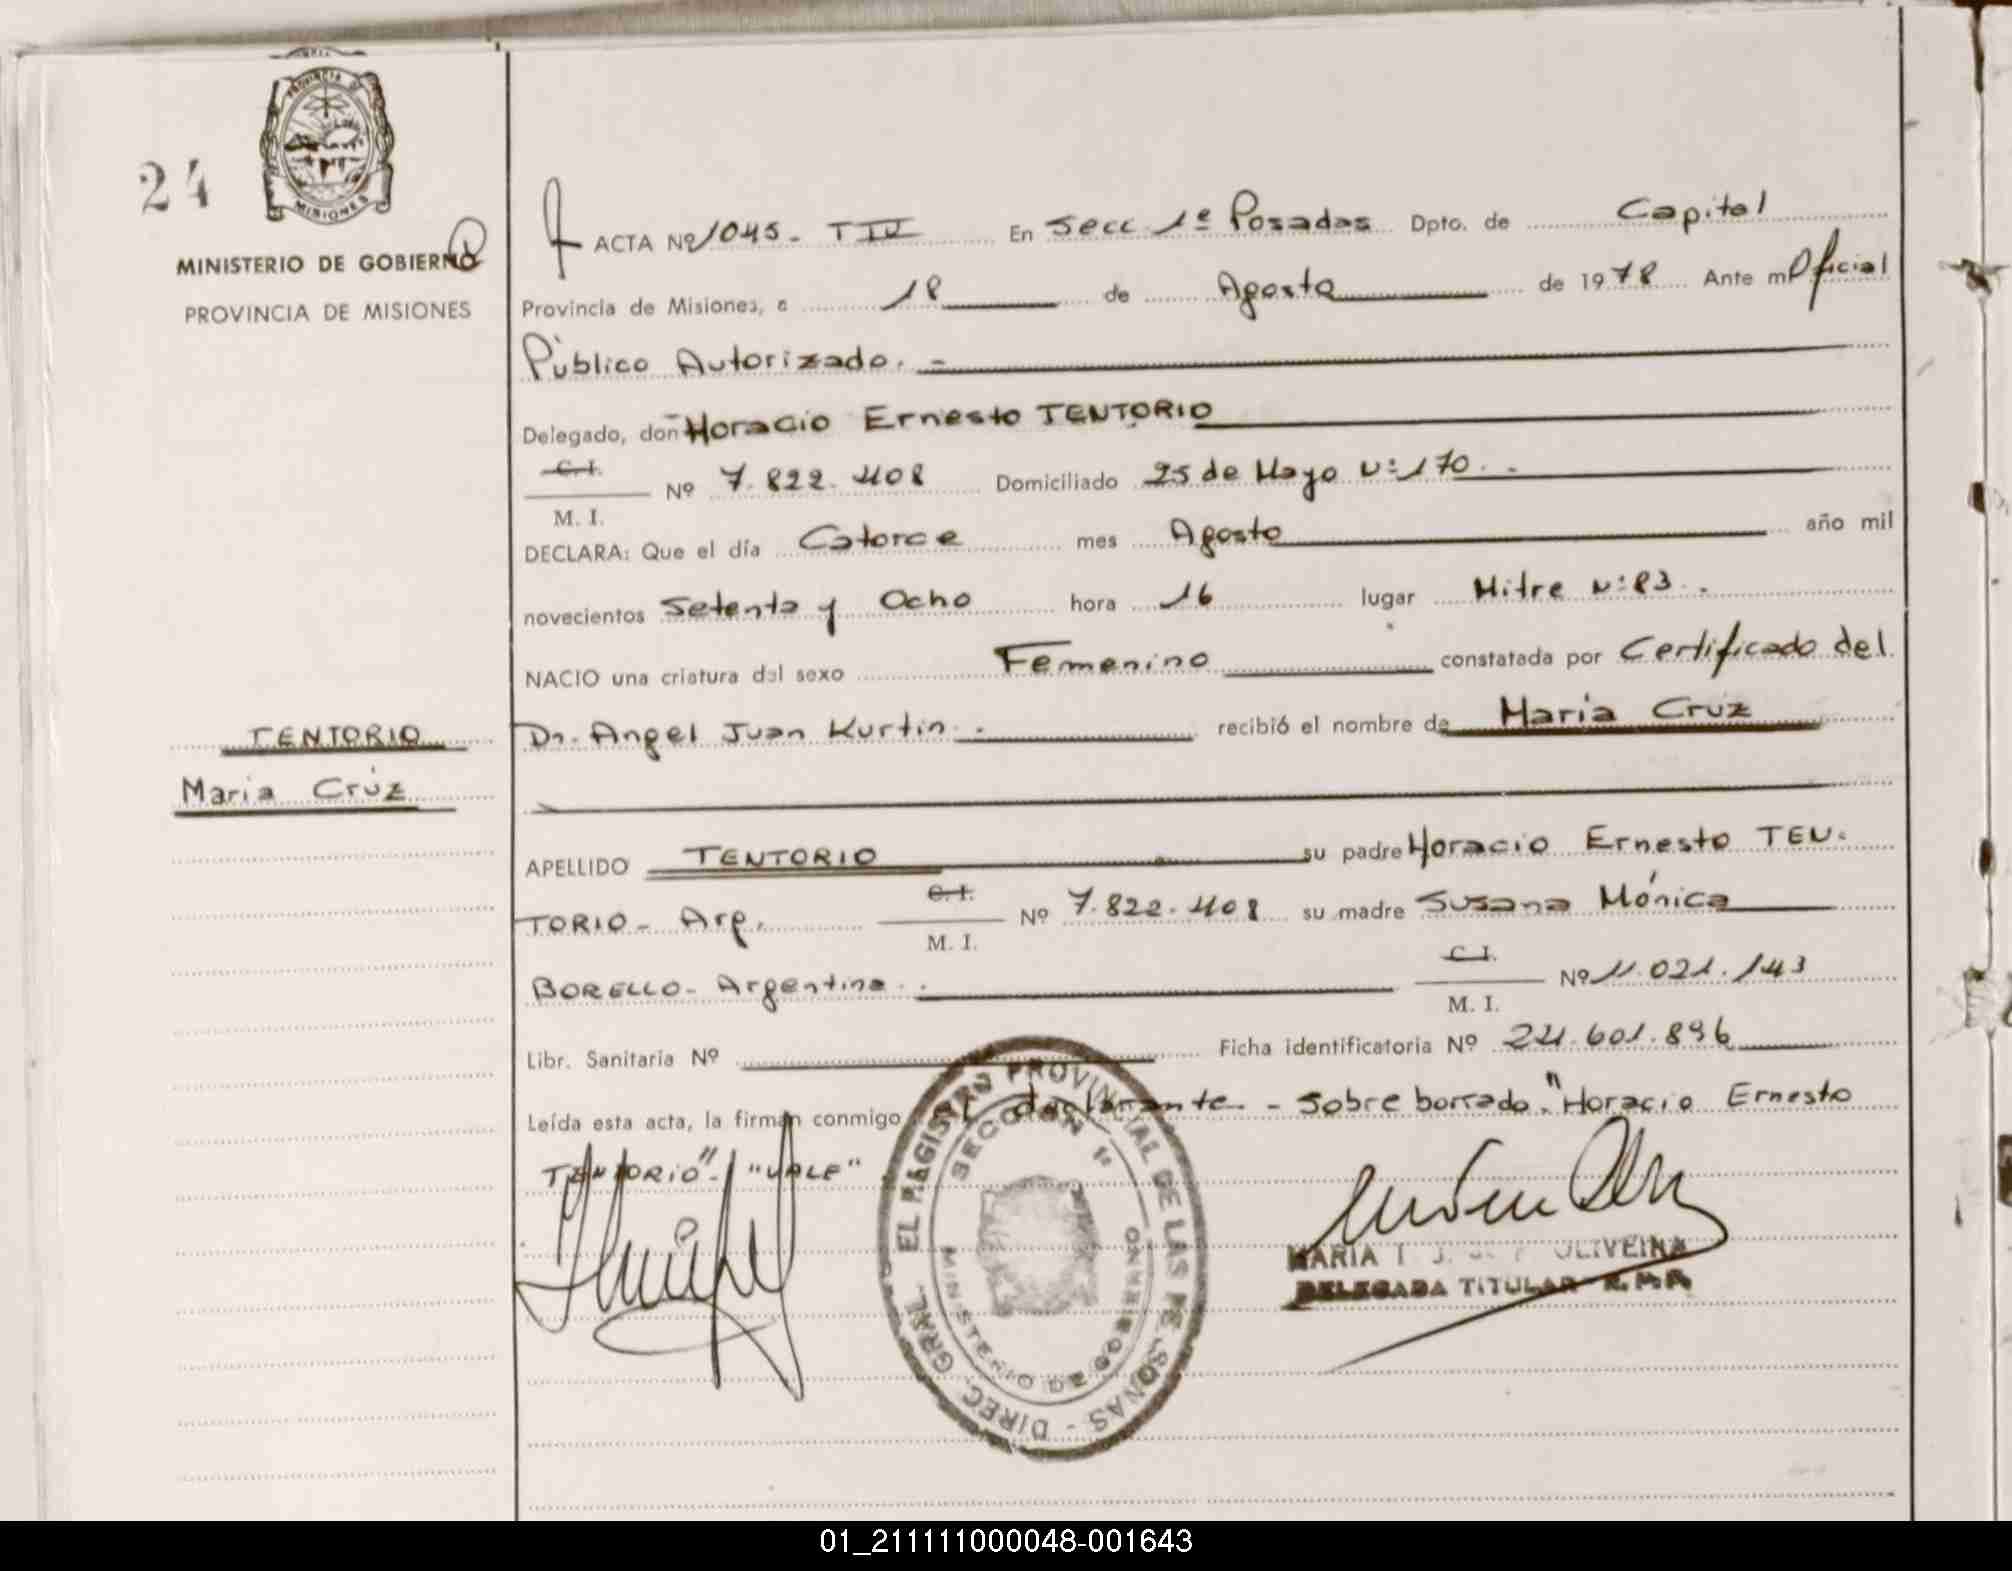 24
PROVINCIA DE
MISIONES
MINISTERIO DE GOBIERNO
PROVINCIA DE MISIONES
ACTA Nº 1045 - T IV En Secc. 1º Posadas Dpto. de Capital
Provincia de Misiones, a 18 de Agosto de 1978 Ante mí Oficial
Público Autorizado. -
Delegado, don Horacio Ernesto TENTORIO
C. I.
Nº 7.822.408 Domiciliado 25 de Mayo Nº 170. -
M. I.
DECLARA: Que el día Catorce mes Agosto año mil
novecientos Setenta y Ocho hora 16 lugar Mitre Nº 83. -
NACIO una criatura del sexo Femenino constatada por Certificado del
TENTORIO
Dr. Angel Juan Kurtin. - recibió el nombre de María Cruz
Maria Crúz
APELLIDO TENTORIO su padre Horacio Ernesto TEN-
C. I.
TORIO - Arg. Nº 7.822.408 su madre Susana Mónica
M. I.
C. I.
BORELLO - Argentina. - Nº 11.021.143
M. I.
Libr. Sanitaria Nº Ficha identificatoria Nº 24.601.896
Leída esta acta, la firman conmigo el declarante - Sobre borrado: "Horacio Ernesto
TENTORIO" - "VALE"
DIREC. GRAL. EL REGISTRO PROVINCIAL DE LAS PERSONAS -
SECCION 1º
MINISTERIO DE GOBIERNO
MARIA OLIVEIRA
DELEGADA TITULAR R.P.P.
01_211111000048-001643